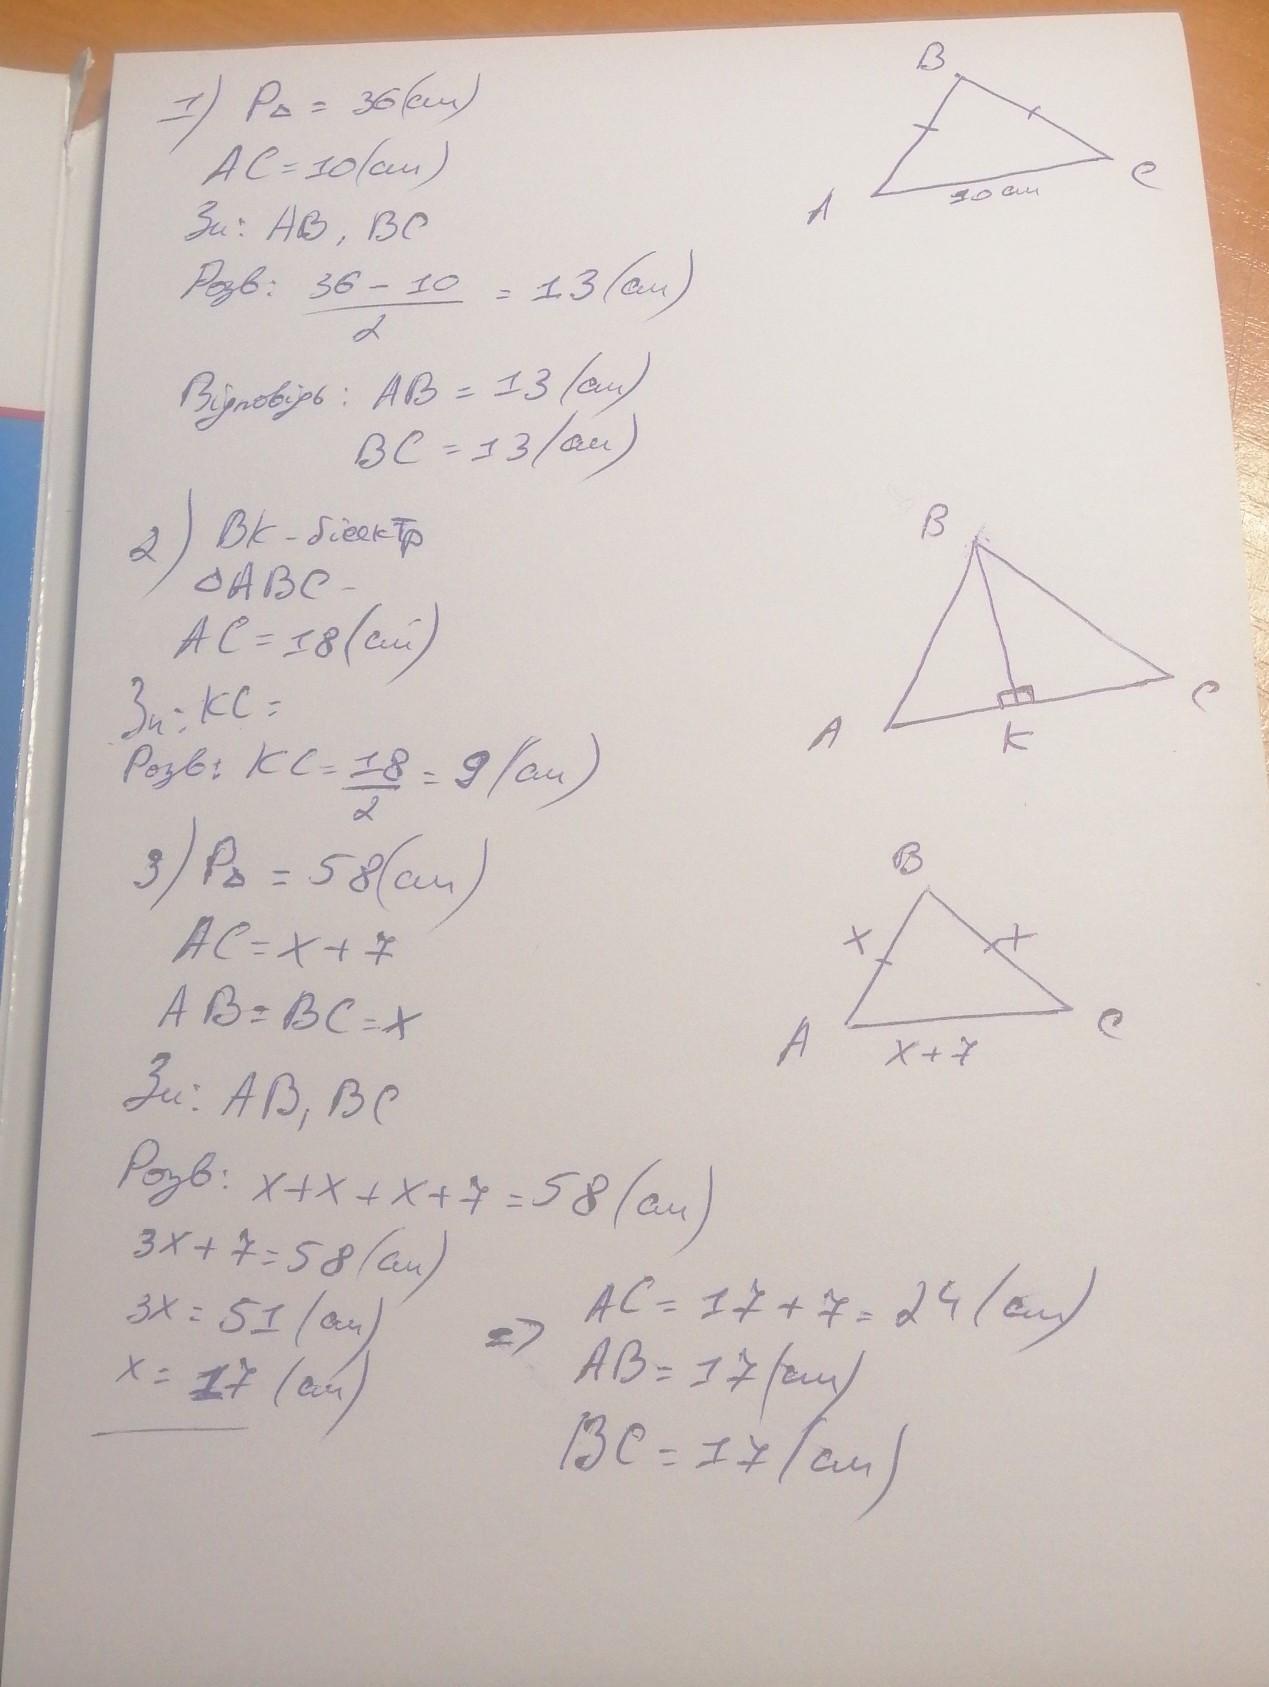 1) P△ = 36(см)
AC = 10(см)
Зн: AB, BC
Розв: 36 - 10 / 2 = 13(см)
Відповідь: AB = 13(см)
BC = 13(см)
B
A
C
10 см
2) BK - бісектр
△ABC -
AC = 18(см)
Зн: KC =
Розв: KC = 18/2 = 9(см)
B
A
K
C
3) P△ = 58(см)
AC = x + 7
AB = BC = x
Зн: AB, BC
Розв: x + x + x + 7 = 58(см)
3x + 7 = 58(см)
3x = 51(см)
x = 17(см)
B
x
x
A
C
x + 7
=> AC = 17 + 7 = 24(см)
AB = 17(см)
BC = 17(см)